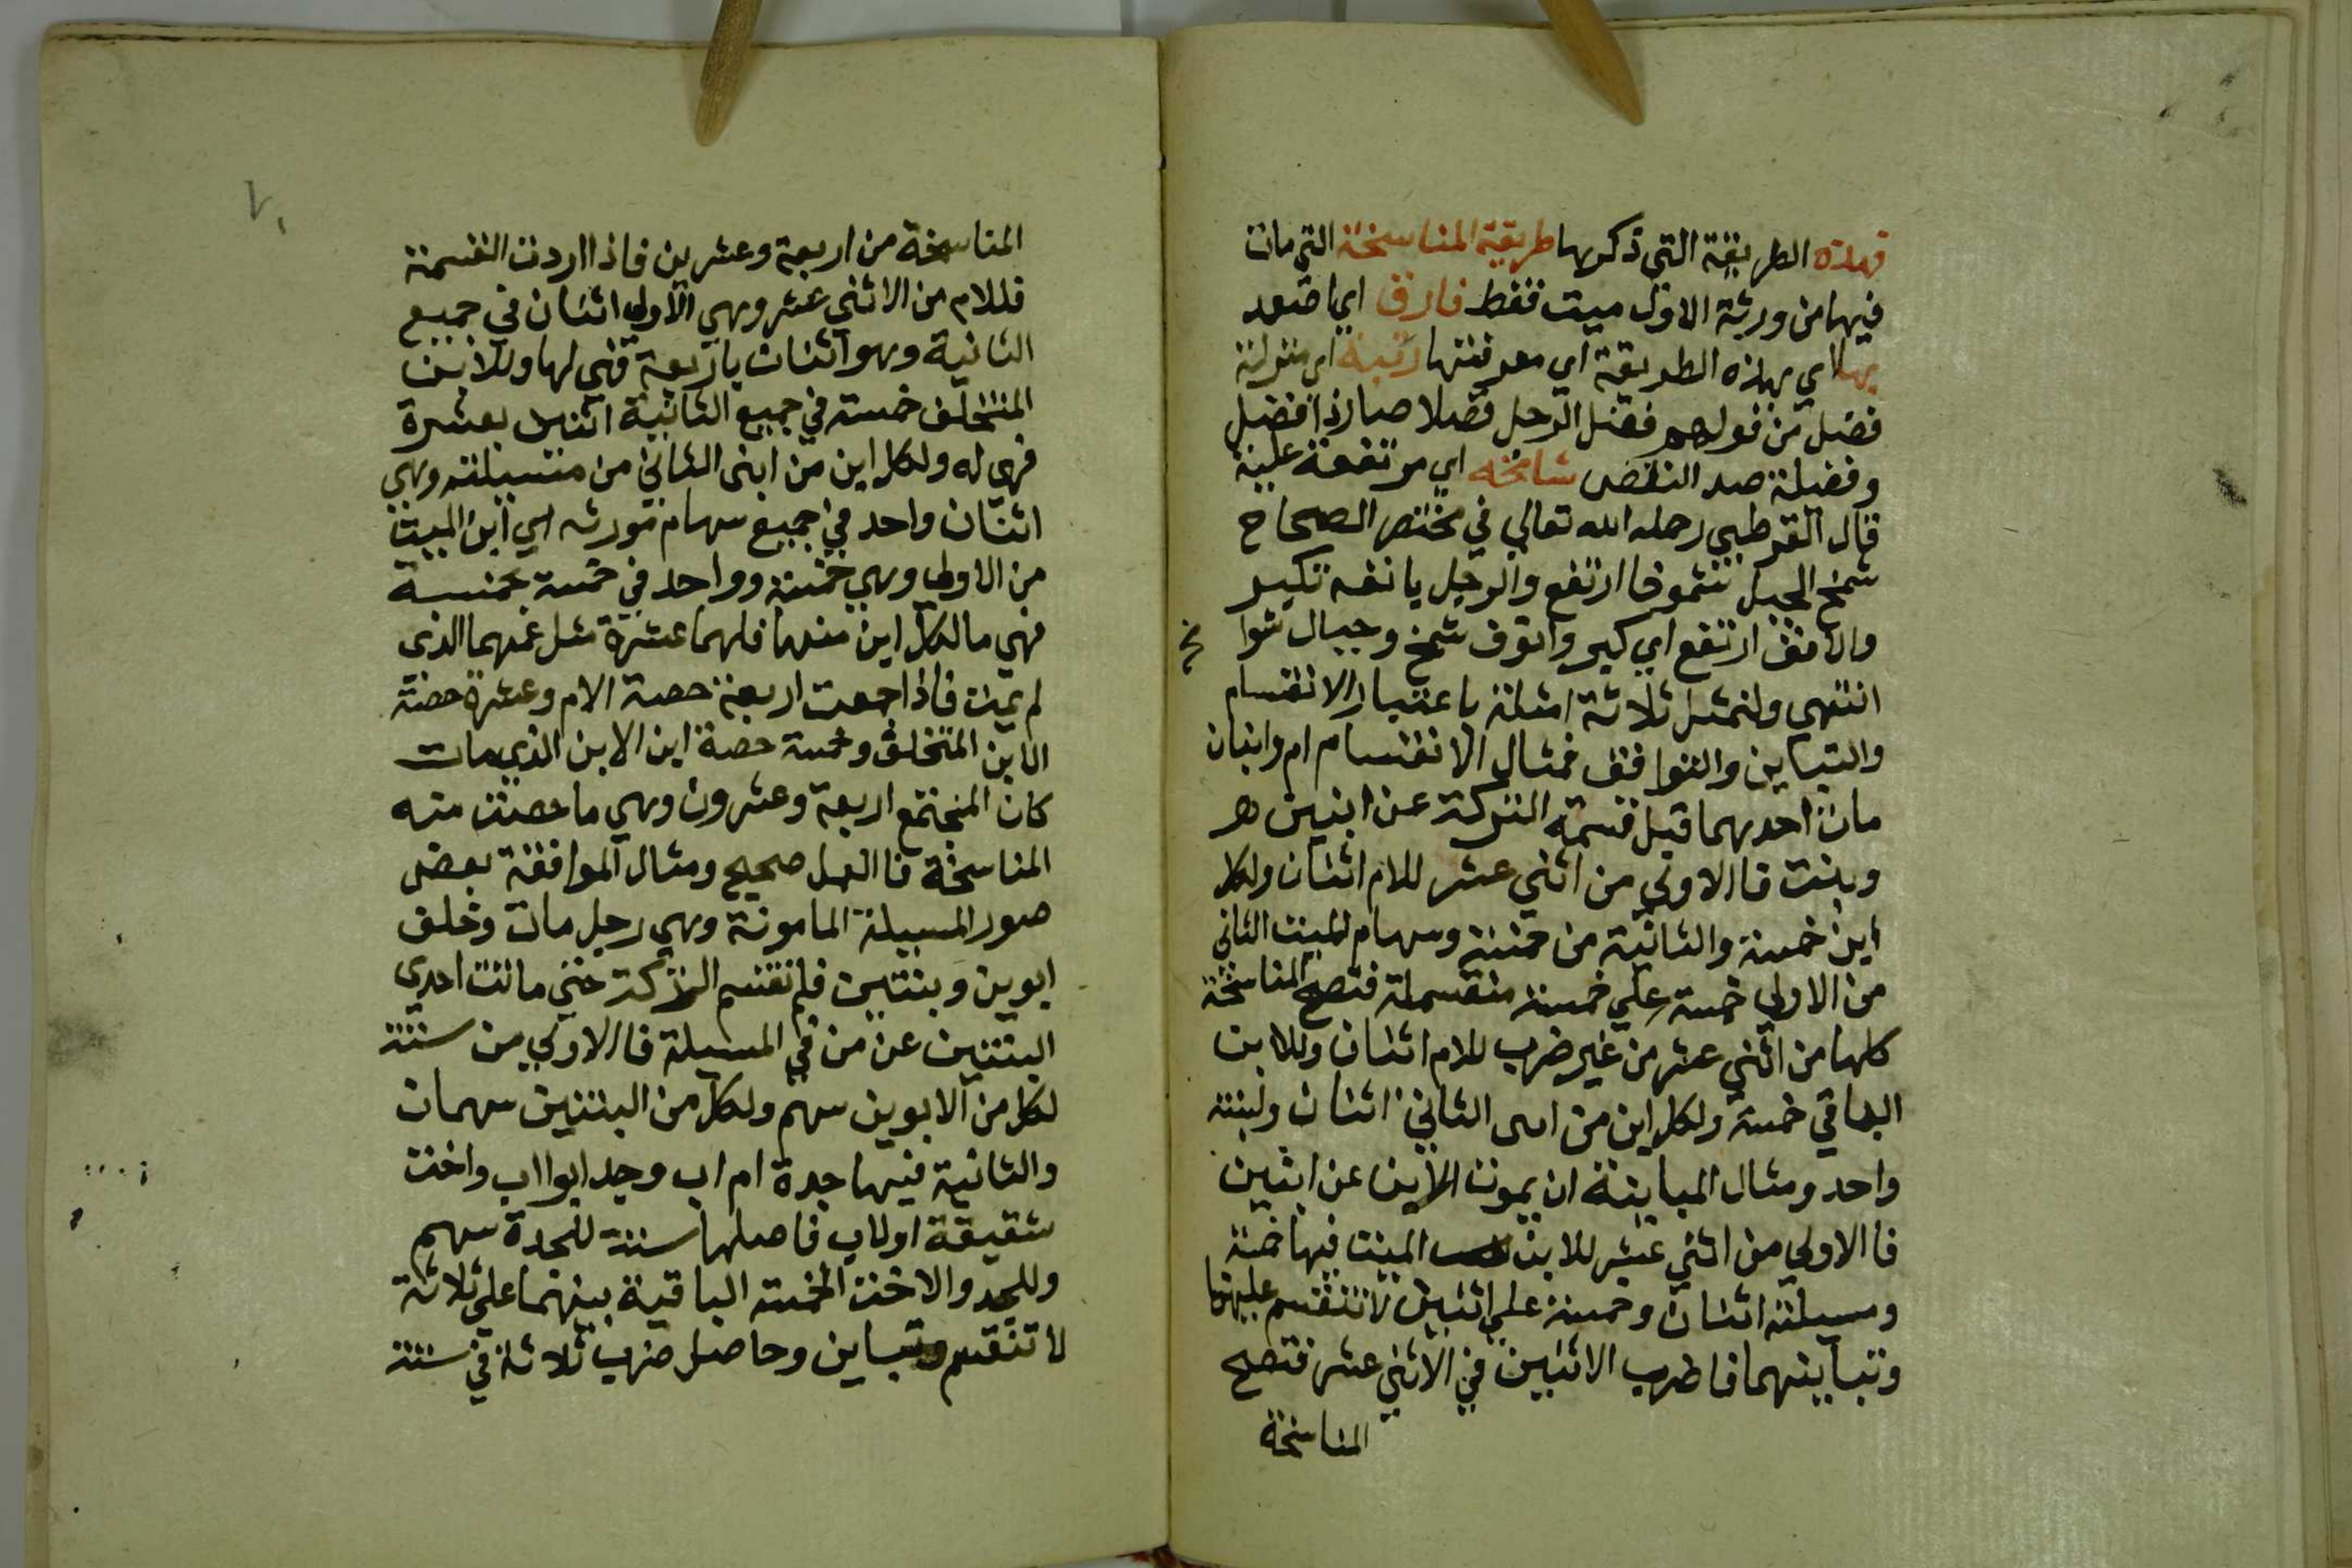 فهذه الطريقة التي ذكرها طريقة المناسخة التي مات
فيها من ورثة الاول ميت فقط فارق اي اصعد
بها اي بهذه الطريقة اي معرفتها رتبة اي منزلة
فضل من قولهم فضل الرجل فضلا صار ذا فضل
وفضيلة ضد النقص شامخه اي مرتفعة علية
قال القرطبي رحمه الله تعالي في مختصر الصحاح
شمخ الجبل شموخا ارتفع والرجل بانفه تكبر
والانف ارتفع اي كبر وانوف شمخ وجبال شوا
مخ
انتهى ولنمثل ثلاثة امثلة باعتبار الانقسام
والتباين والتوافق فمثال الانقسام ام وابنان
مات احدهما قبل قسمة التركة عن ابنين
وبنت فالاولي من اثني عشر للام اثنان ولكل
ابن خمسة والثانية من خمسة وسهام الميت الثاني
من الاولي خمسة علي خمسة منقسمة فتصح المناسخة
كلها من اثني عشر من غير ضرب للام اثنان وللابن
الباقي خمسة ولكل ابن من ابني الثاني اثنان ولبنته
واحد ومثال المباينة ان يموت الابن عن ابنين
فالاولي من اثني عشر للابن الميت فيها خمسة
ومسيلته اثنان وخمسة علي اثنين لا تنقسم عليهما
وتباينهما فاضرب الاثنين في الاثني عشر فتصح
المناسخة
٧٠
المناسخة من اربعة وعشرين فاذا اردت القسمة
فللام من الاثني عشر وهي الاولي اثنان في جميع
الثانية وهو اثنان باربعة فهي لها وللابن
المتخلف خمسة في جميع الثانية اثنين بعشرة
فهي له ولكل ابن من ابني الثاني من مسيلته وهي
اثنان واحد في جميع سهام مورثه اي ابن الميت
من الاولي وهي خمسة وواحد في خمسة بخمسة
فهي ما لكل ابن منهما فلهما عشرة مثل عمهما الذي
لم يمت فاذا جمعت اربعة حصة الام وعشرة حصة
الابن المتخلف وخمسة حصة ابن الابن الذي مات
كان المجتمع اربعة وعشرون وهي ما صحت منه
المناسخة فالعمل صحيح ومثال الموافقة بعض
صور المسيلة المامونة وهي رجل مات وخلف
ابوين وبنتين فلم تقسم التركة حتي ماتت احدي
البنتين عن من في المسيلة فالاولي من ستة
لكل من الابوين سهم ولكل من البنتين سهمان
والثانية فيها جدة ام اب وجد ابو اب واخت
شقيقة او لاب فاصلها ستة للجدة سهم
وللجد والاخت الخمسة الباقية بينهما علي ثلاثة
لا تنقسم وتباين وحاصل ضرب ثلاثة في ستة